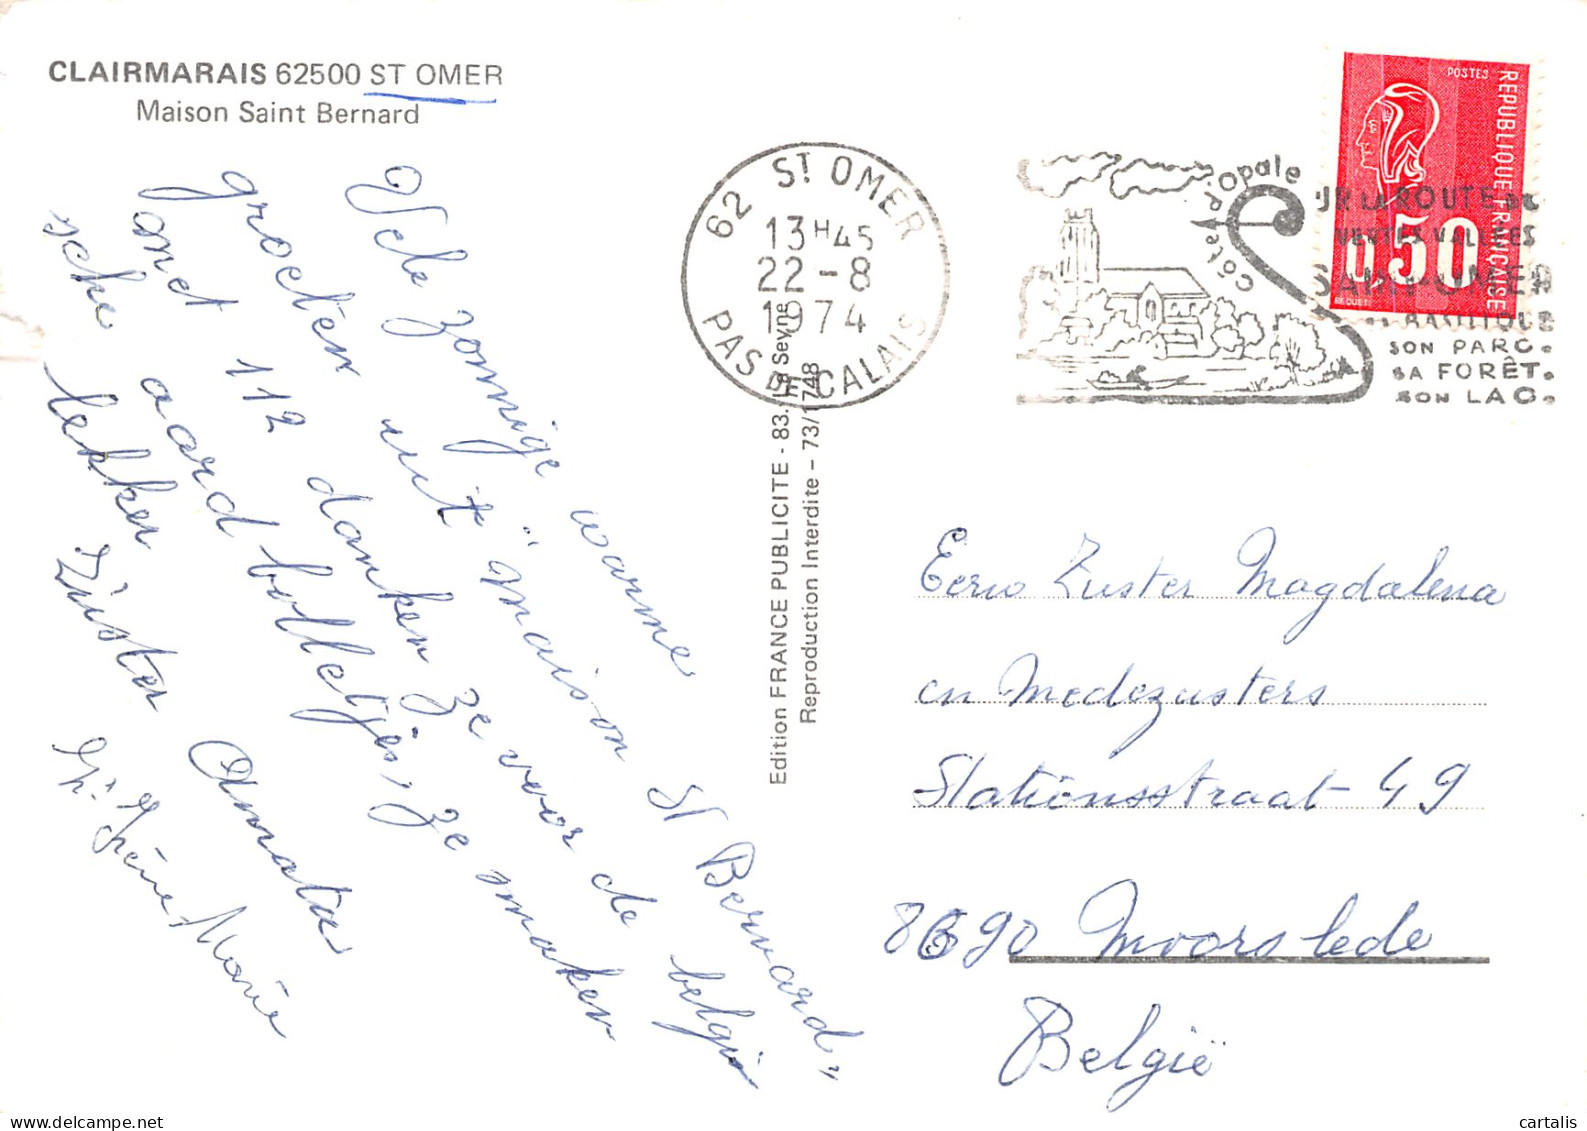 CLAIRMARAIS 62500 ST OMER
Maison Saint Bernard
Vele zonnige warme
groeten uit "Maison St Bernard"
onct 112 danken ze voor de belgi
sche aard bolletjes, ze smaken
lekker Zuster Amata
Zr. Irène-Marie
62 ST OMER
13H45
22-8
1974
PAS DE CALAIS
Côte d'Opale
UR LA ROUTE DES
VERTES VALLEES
SAINT-OMER
BASILIQUE
SON PARC.
SA FORÊT.
SON LAC.
POSTES
REPUBLIQUE FRANÇAISE
0,50
BEQUET
Edition FRANCE PUBLICITE - 83. La Seyne
Reproduction Interdite - 73/1748
Eerw Zuster Magdalena
en Medezusters
Stationsstraat 49
8690 Moorslede
België
cartalis